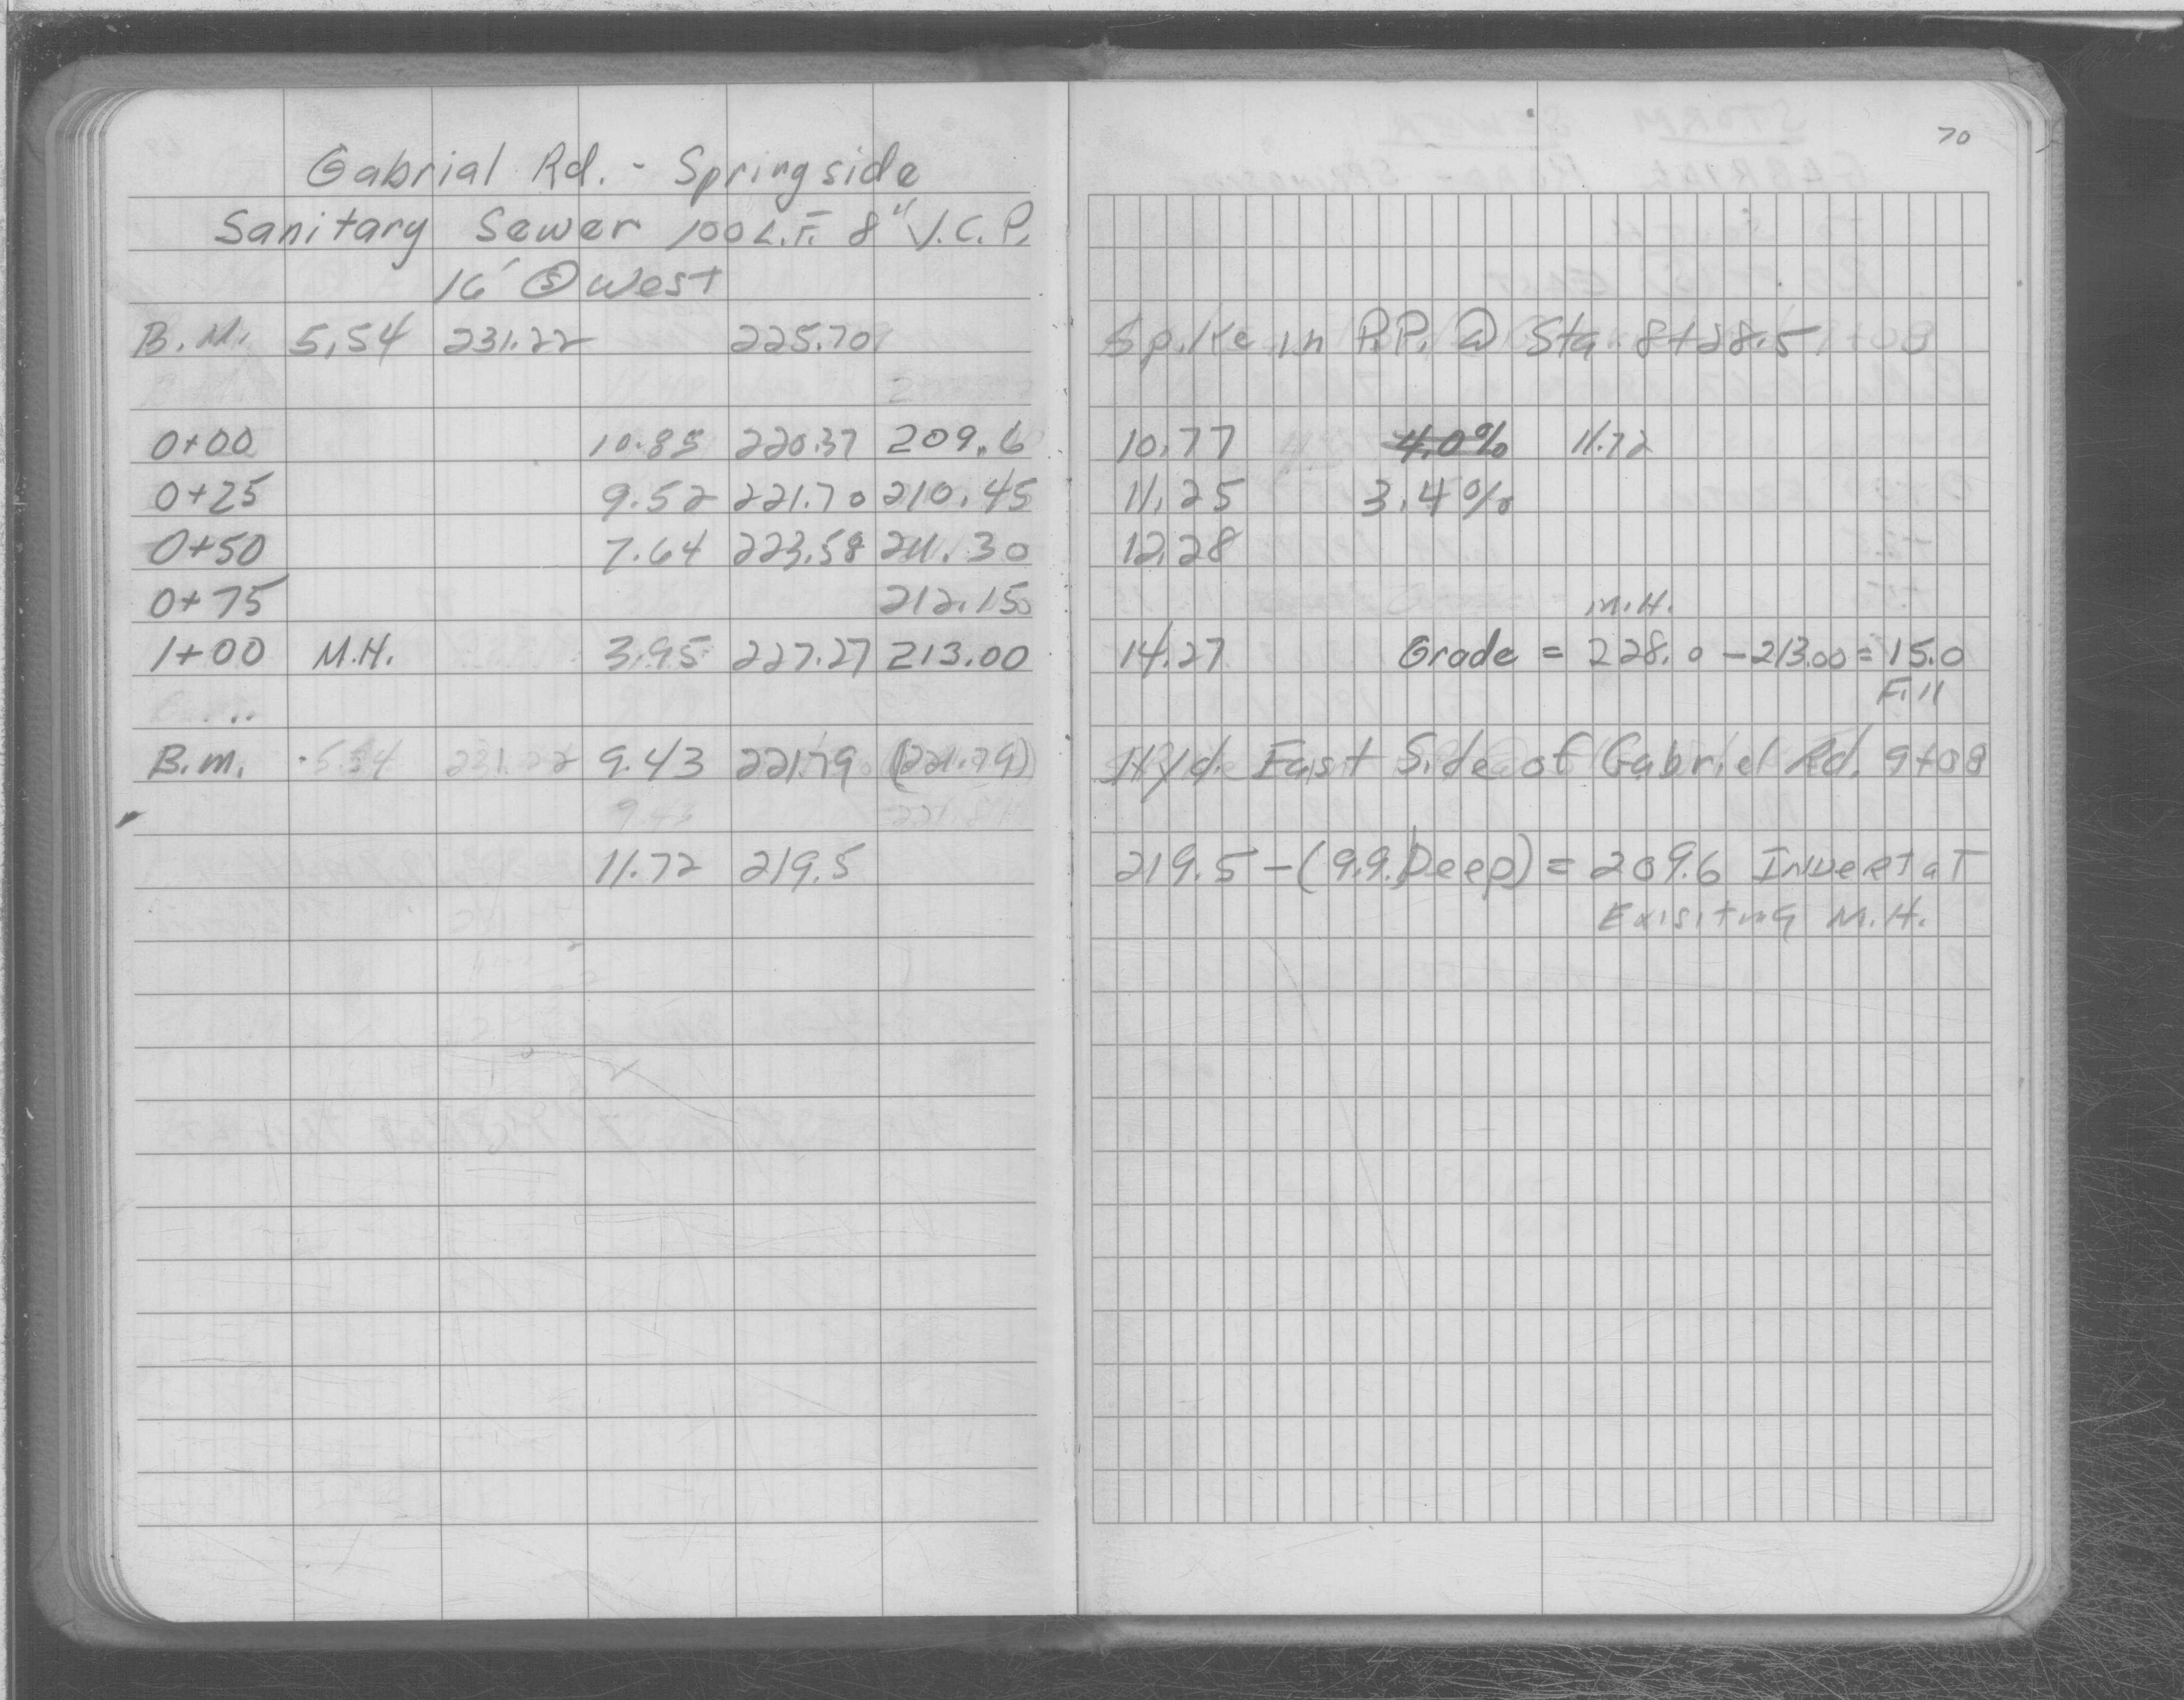 70
Gabrial Rd. - Springside
Sanitary Sewer 100 L.F. 8" V.C.P.
16' @ West
B.M. 5.54 231.22 225.70 Spike in P.P. @ Sta 8+28.5
0+00 10.85 220.37 209.6 10.77 4.0% 11.72
0+25 9.52 221.70 210.45 11.25 3.4%
0+50 7.64 223.58 211.30 12.28
0+75 212.150 M.H.
1+00 M.H. 3.95 227.27 213.00 14.27 Grade = 228.0 - 213.00 = 15.0
Fill
B.m. 5.54 231.22 9.43 221.79 (221.79) Hyd. East Side of Gabriel Rd. 9+08
9.43
11.72 219.5 219.5 - (9.9 Deep) = 209.6 Invert at
Exisiting M.H.